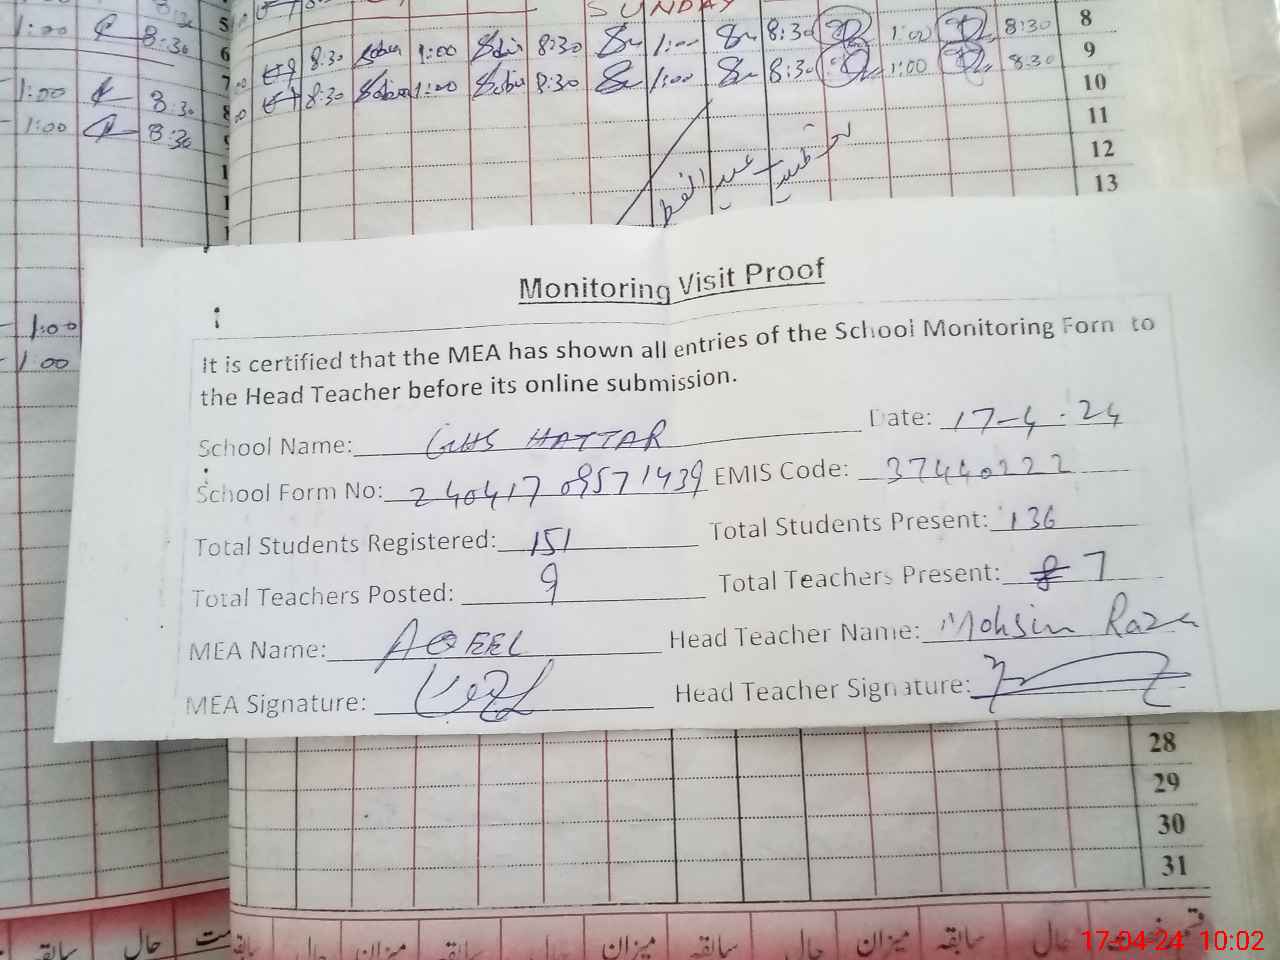 SUNDAY
1:00 8:30
8:30 1:00 8:30 1:00 8:30 1:00 8:30 8
8:30 1:00 8:30 1:00 8:30 1:00 8:30 9
1:00 8:30 10
1:00 8:30 11
12
13
عید الفطر
Monitoring Visit Proof
It is certified that the MEA has shown all entries of the School Monitoring Form to
the Head Teacher before its online submission.
School Name: GHS HATTAR Date: 17-4-24
School Form No: 240417 09571439 EMIS Code: 37440222
Total Students Registered: 151 Total Students Present: 136
Total Teachers Posted: 9 Total Teachers Present: 7
MEA Name: AQEEL Head Teacher Name: Mohsin Raza
MEA Signature: Head Teacher Signature:
1:00
1:00
28
29
30
31
سابقہ حال میزان سابقہ حال میزان سابقہ حال
17-04-24 10:02